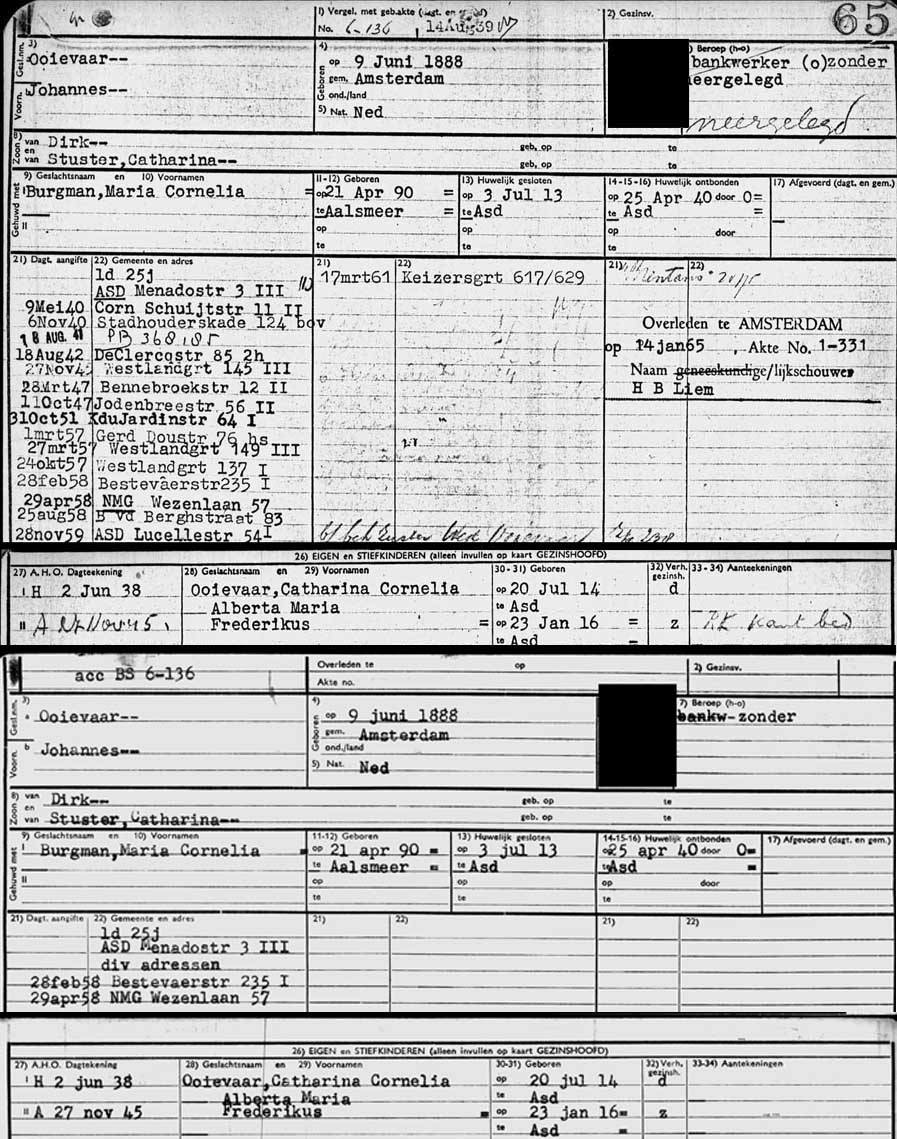 1) Vergel. met geb.akte (dagt. en
No. 6-136 14Aug39
2) Gezinsv.
65
3)
Gesl.nm.
a Ooievaar--
Voorn.
Johannes--
4)
Geboren
op 9 Juni 1888
gem. Amsterdam
ond./land
5) Nat. Ned
) Beroep (h-o)
bankwerker (o)zonder
neergelegd
neergelegd
Zoon 8)
van Dirk--
en
van Stuster,Catharina--
geb. op te
geb. op te
Gehuwd met
9) Geslachtsnaam en 10) Voornamen
I Burgman,Maria Cornelia =
II
11-12) Geboren
op 21 Apr 90 =
te Aalsmeer =
op
te
13) Huwelijk gesloten
op 3 Jul 13
te Asd
op
te
14-15-16) Huwelijk ontbonden
op 25 Apr 40 door O=
te Asd =
op door
te
17) Afgevoerd (dagt. en gem.)
21) Dagt. aangifte 22) Gemeente en adres
ld 25j
ASD Menadostr 3 III
9Mei40 Corn Schuijtstr 11 II
6Nov40 Stadhouderskade 124 bov
18 AUG. 41 PB 368185
18Aug42 DeClercqstr 85 2h
27Nov42 Westlandgrt 145 III
28Mrt47 Bennebroekstr 12 II
11Oct47 Jodenbreestr 56 II
31Oct51 KduJardinstr 64 I
1mrt57 Gerd Doustr 76 hs
27mrt57 Westlandgrt 149 III
24okt57 Westlandgrt 137 I
28feb58 Bestevâerstr235 I
29apr58 NMG Wezenlaan 57
25aug58 B vd Berghstraat 83
28nov59 ASD Lucellestr 54 I
21) 22)
17mrt61 Keizersgrt 617/629
21) 22)
Overleden te AMSTERDAM
op 14jan65 , Akte No. 1-331
Naam geneeskundige/lijkschouwer
H B Liem
26) EIGEN en STIEFKINDEREN (alleen invullen op kaart GEZINSHOOFD)
27) A.H.O. Dagteekening
28) Geslachtsnaam en 29) Voornamen
30-31) Geboren
32) Verh. gezinsh.
33-34) Aanteekeningen
I H 2 Jun 38 Ooievaar,Catharina Cornelia op 20 Jul 14 d
Alberta Maria te Asd
II A 27 Nov 45. Frederikus = op 23 Jan 16 = z PK kant bed
te Asd =
acc BS 6-136
Overleden te op
Akte no.
2) Gezinsv.
3)
Gesl.nm.
a Ooievaar--
Voorn.
b Johannes--
4)
Geboren
op 9 juni 1888
gem. Amsterdam
ond./land
5) Nat. Ned
7) Beroep (h-o)
bankw-zonder
Zoon 8)
van Dirk--
en
van Stuster,Catharina--
geb. op te
geb. op te
Gehuwd met
9) Geslachtsnaam en 10) Voornamen
I Burgman,Maria Cornelia =
II
11-12) Geboren
op 21 apr 90 =
te Aalsmeer =
op
te
13) Huwelijk gesloten
op 3 jul 13
te Asd
op
te
14-15-16) Huwelijk ontbonden
op 25 apr 40 door O=
te Asd =
op door
te
17) Afgevoerd (dagt. en gem.)
21) Dagt. aangifte 22) Gemeente en adres
ld 25j
ASD Menadostr 3 III
div adressen
28feb58 Bestevaerstr 235 I
29apr58 NMG Wezenlaan 57
21) 22)
21) 22)
26) EIGEN en STIEFKINDEREN (alleen invullen op kaart GEZINSHOOFD)
27) A.H.O. Dagtekening
28) Geslachtsnaam en 29) Voornamen
30-31) Geboren
32) Verh. gezinsh.
33-34) Aantekeningen
I H 2 jun 38 Ooievaar,Catharina Cornelia op 20 jul 14 d
Alberta Maria te Asd
II A 27 nov 45 Frederikus = op 23 jan 16= z
te Asd =